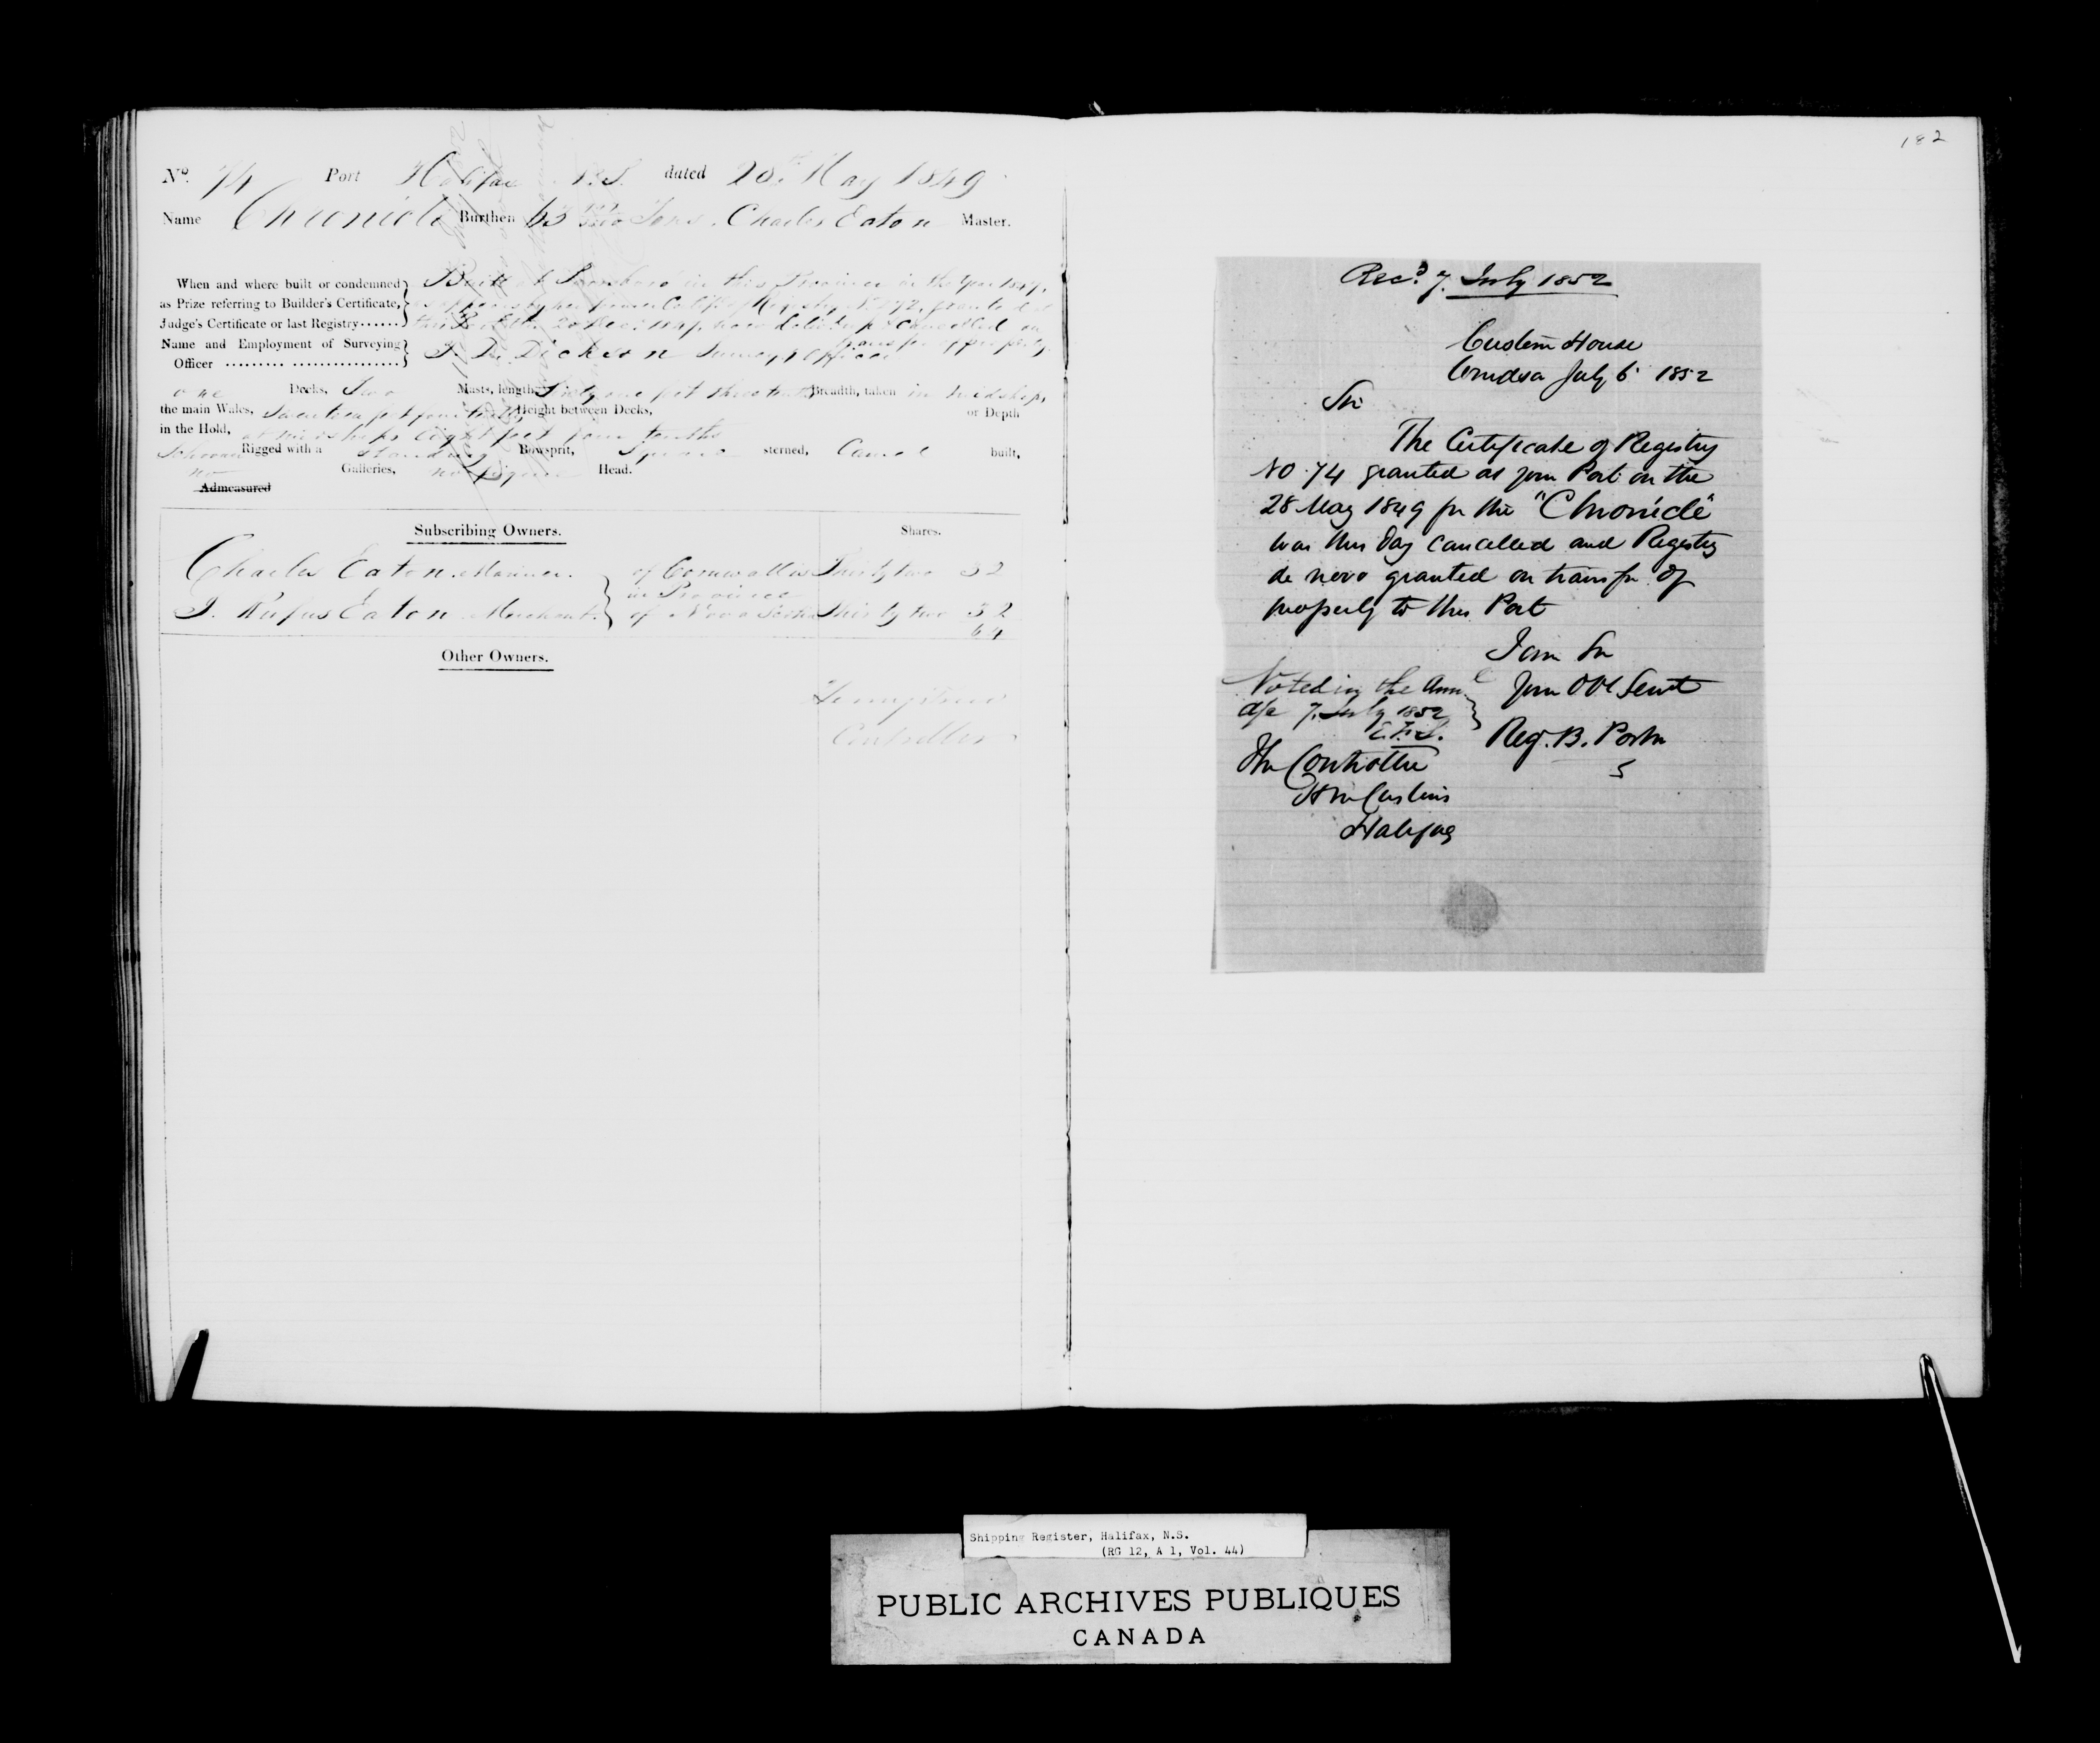 No. 74 Port Halifax N.S. dated 28th May 1849
Name Chronicle Burthen 63 Tons. Charles Eaton Master.
When and where built or condemned as Prize referring to Builder's Certificate, Judge's Certificate or last Registry......
Built at Parrsboro in this Province in the Year 1847,
as appears by her former Certife of Registry No 272, granted at
this Port the 20 Dec. 1847, now delivered up & Cancelled on
transfer of property.
Name and Employment of Surveying Officer ......... .................
T. R. Dickson Surveyg Officer
one Decks, Two Masts, length Sixty one feet three tenths Breadth, taken in midships
the main Wales, Seventeen feet four tenths Height between Decks, or Depth
in the Hold, at midships eight feet four tenths
Schooner Rigged with a standing Bowsprit, Square sterned, Carvel built,
no Galleries, no figure Head.
Admeasured
Subscribing Owners. Shares.
Charles Eaton. Mariner. of Cornwallis Thirty two 32
in Province
J. Rufus Eaton Merchant. of Nova Scotia Thirty two 32
64
Other Owners.
Controller
182
Recd. 7. July 1852
Custom House
July 6 1852
Sir
The Certificate of Registry
No 74 granted at your Port on the
28 May 1849 for the "Chronicle"
was this day cancelled and Registry
de novo granted on transfer of
property to this Port
I am Sir
your Obt Servt
Noted in the
7. July 1852
E.F.S.
Reg. B. Porter
The Controller
HM Customs
Halifax
Shipping Register, Halifax, N.S.
(RG 12, A 1, Vol. 44)
PUBLIC ARCHIVES PUBLIQUES
CANADA